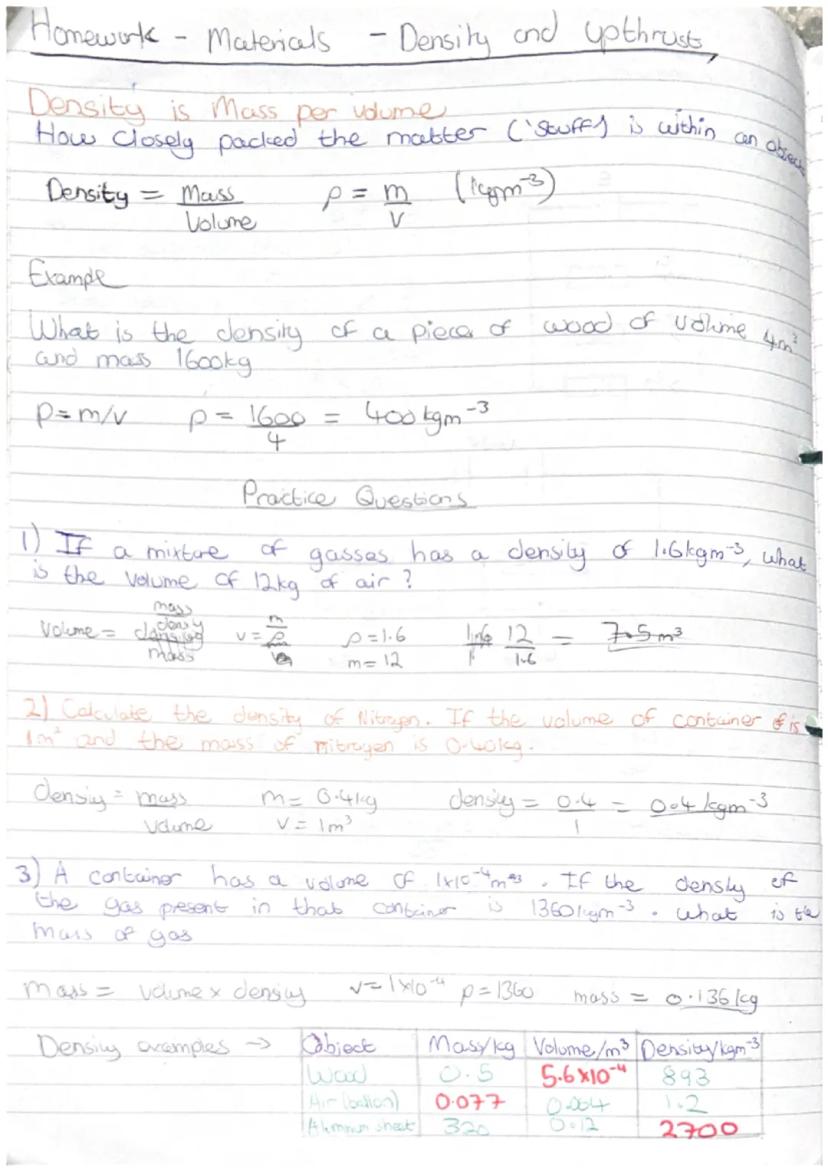 Homework - Materials - Density and upthrust
Density is Mass per volume
How closely packed the matter ('stuff') is within an object
Density = Mass / Volume ρ = m / v (kgm⁻³)
Example
What is the density of a piece of wood of volume 4m³
and mass 1600kg
ρ=m/v ρ = 1600 / 4 = 400kgm⁻³
Practice Questions
1) If a mixture of gasses has a density of 1.6kgm⁻³, what
is the volume of 12kg of air?
Volume = mass / density v = m / ρ ρ=1.6 m=12 12 / 1.6 = 7.5m³
2) Calculate the density of Nitrogen. If the volume of container is
1m³ and the mass of nitrogen is 0.40kg.
density = mass / volume m= 0.4kg v=1m³ density = 0.4 / 1 = 0.4kgm⁻³
3) A container has a volume of 1x10⁻⁴m³. If the density of
the gas present in that container is 1360kgm⁻³. what is the
mass of gas
mass = volume x density v=1x10⁻⁴ ρ=1360 mass = 0.136kg
Density examples → Object Mass/kg Volume/m³ Density/kgm⁻³
Wood 0.5 5.6x10⁻⁴ 893
Air (ballon) 0.077 0.064 1.2
sheet 320 0.12 2700